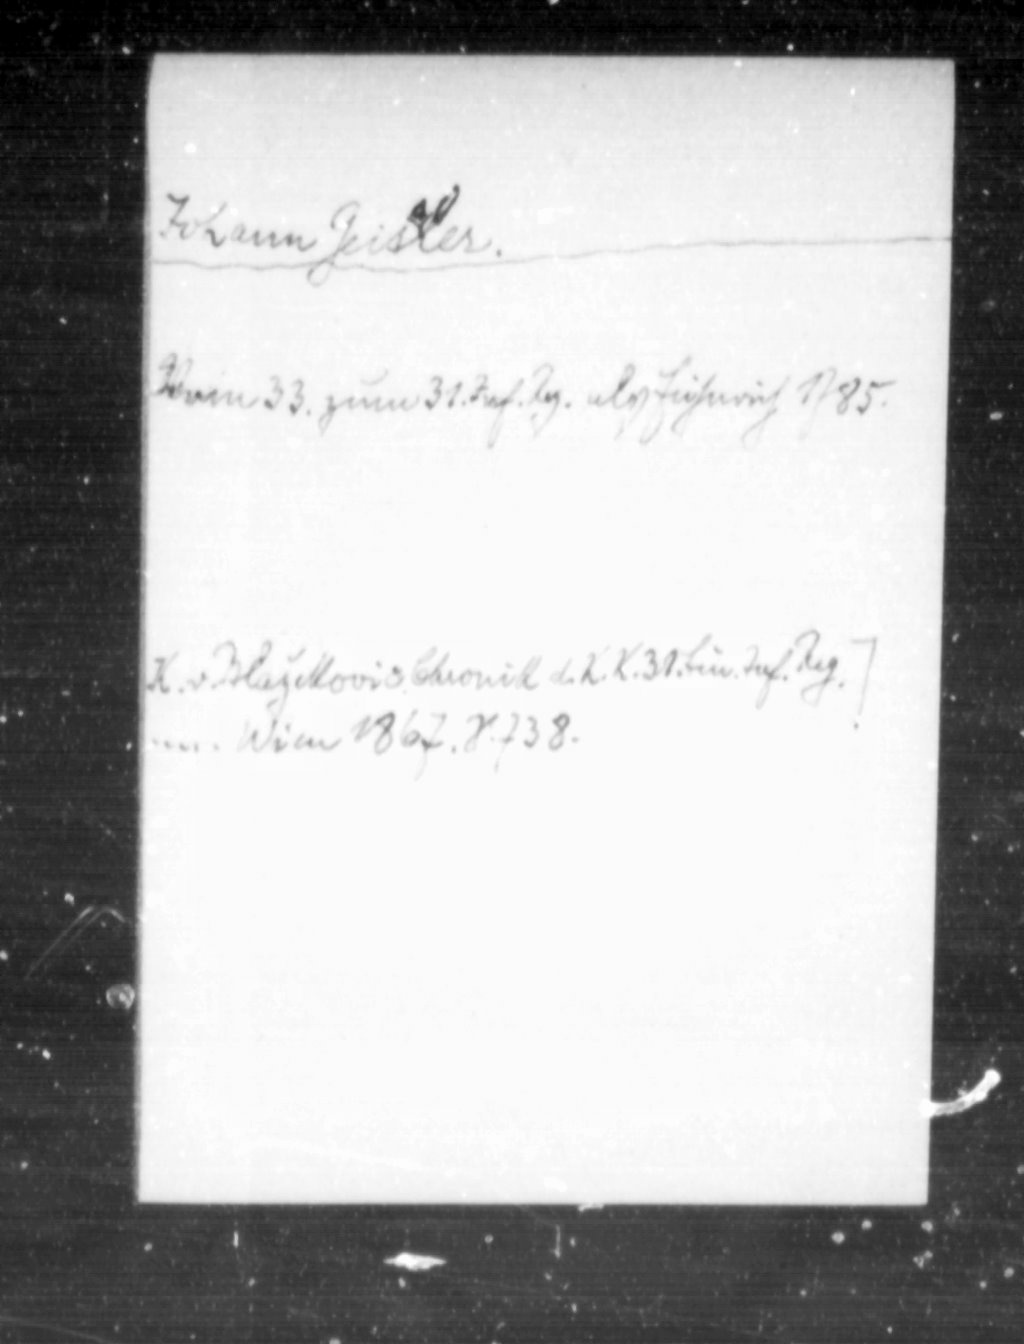 Johann Geisler.
Vom 33. zum 31. Inf. Reg. als Fähnrich 1785.
K. v. Blažekovic Chronik d. K. K. 31. Lin. Inf. Reg.
Wien 1867. S. 738.